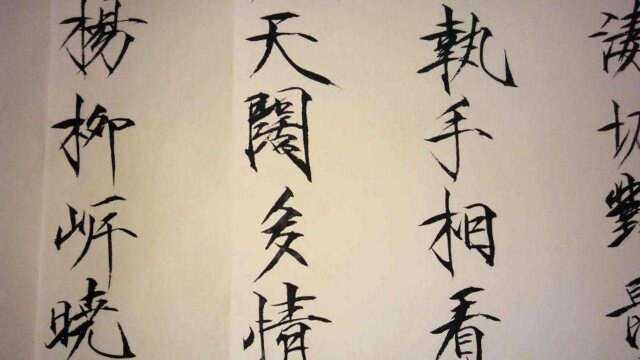 淒切對長
執手相看
天闊多情
楊柳岸曉